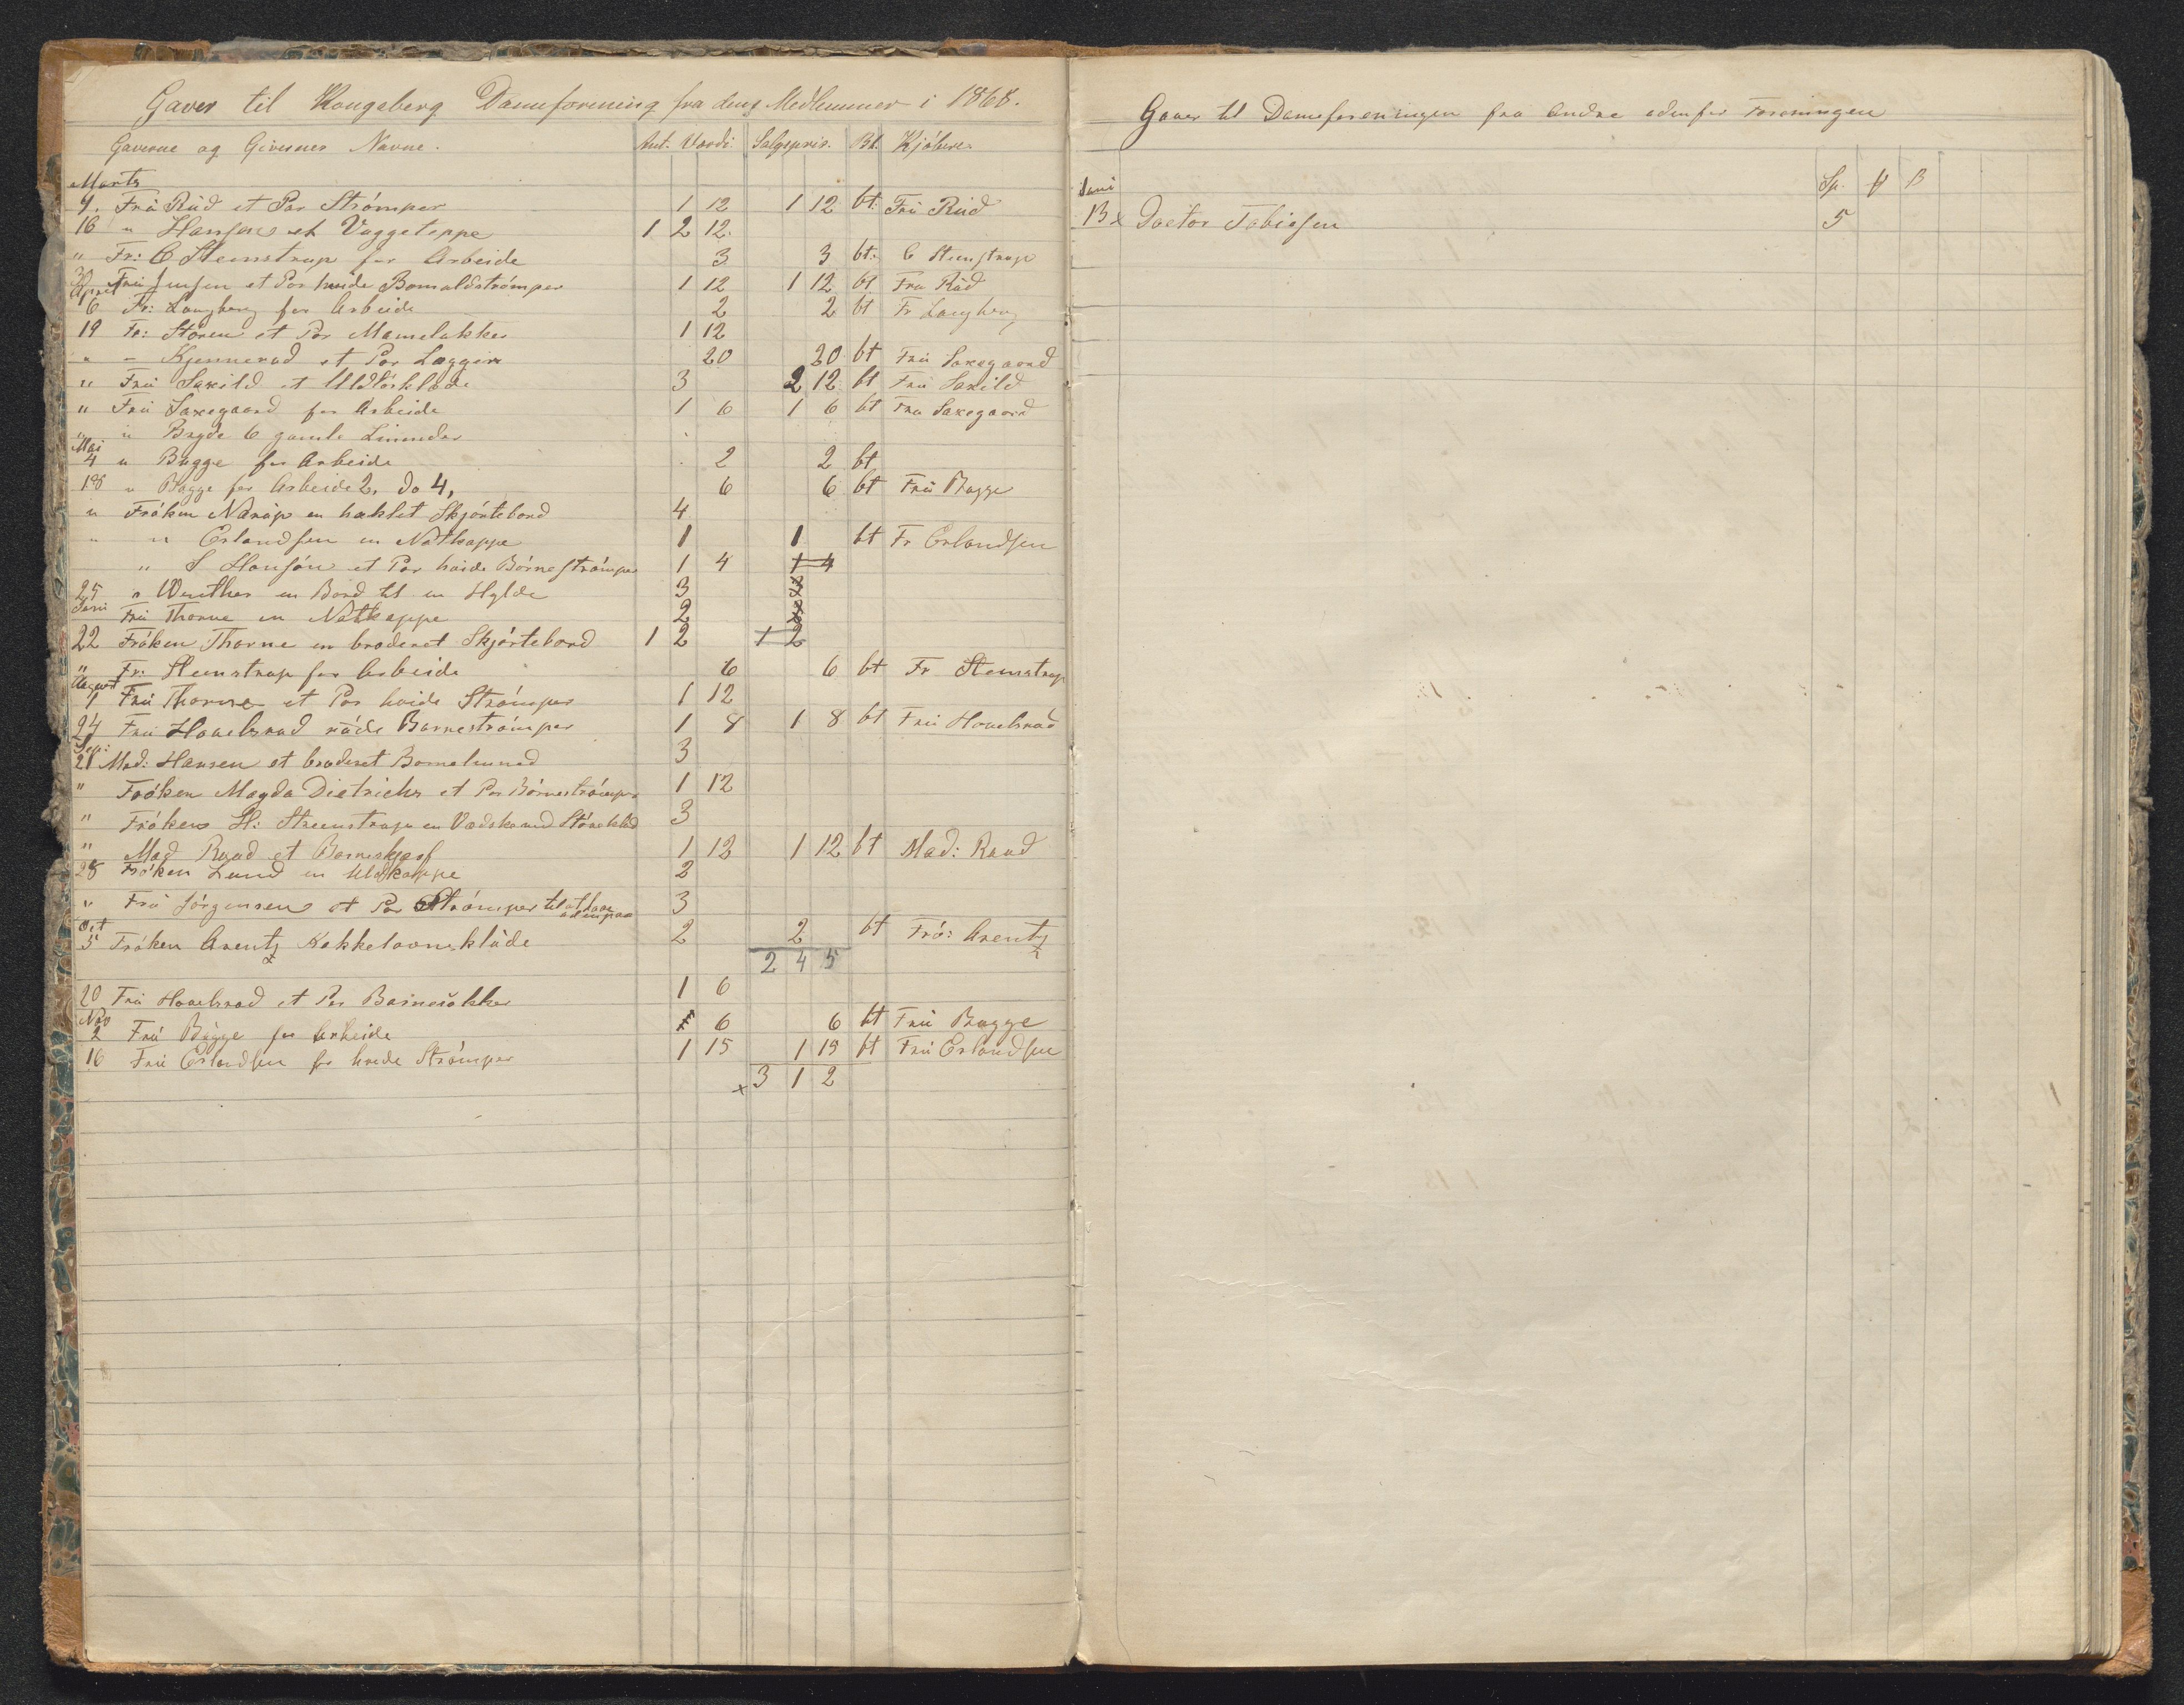 Gaver til Kongsberg Dameforening fra dens Medlemmer i 1868.
Gaverne og Givernes Navne. Ant. Værdi. Salgspris. Bt. Kjøbere
Marts
9. Frü Rüd et Par Strømper 1 12 1 12 bt. Frü Rüd
16 " Hansen et Vuggeteppe 1 2 12.
" Fr: C Steenstrup for Arbeide 3 3 bt. C Steenstrup
30 Frü Jensen et Par hvide Bomuldströmper 1 12 1 12 bt Fru Rüd
April
6 Fr: Langberg for Arbeide 2 2 bt Fr Langberg
19 Fr: Støren et Par Mamelukker 1 12
" " Kjennerud et Par Lægger 20 20 bt Frü Saxegaard
" Frü Saxild et Uldtörklæde 3 2 12 bt Frü Saxild
" Frü Saxegaard for Arbeide 1 6 1 6 bt Fru Saxegaard
" " Bryde 6 gamle
Mai
4 " Bugge for Arbeide 2 2 bt
18 " Bugge for Arbeide 2, do 4, 6 6 bt Frü Bugge
" Frøken Nærüp en hæklet Skjørtebord 4
" " Erlandsen en Natkappe 1 1 bt Fr Erlandsen
" S Hansön et Par hvide Børnestrømper 1 4 1 4
25 " Winther en Bord til en Hylde 3 3
Juni
Frü Thorne en Natkappe 2 2
22 Frøken Thorne en broderet Skjørtebord 1 2 1 2
" Fr: Steenstrup for Arbeide 6 6 bt Fr Steenstrup
August
4 Frü Thorne et Par hvide Strømper 1 12
24 Frü Houelsrud røde Barnestrømper 1 8 1 8 bt Frü Houelsrud
Sep:
21 Mad: Hansen et broderet 3
" Frøken Magda Dietrichs et Par Börneströmper 1 12
" Frøken H: Steenstrup en 3
" Mad Ruud et Barneskjærf 1 12 1 12 bt Mad: Ruud
28 Frøken Lund en Uldkappe 2
" Frü Jørgensen et Par Strømper til at have udenpaa 3
Oct
5 Frøken Arentz Kakkelovnsklæde 2 2 bt Frø: Arentz
2 4 5
20 Frü Houelsrud et Par Barnesokker 1 6
Nov
2 Frü Bügge for Arbeide 6 6 bt Frü Bugge
16 Frü Erlandsen for hvide Strømper 1 15 1 15 bt Frü Erlandsen
x 3 1 2
Gaver til Dameforeningen fra Andre udenfor Foreningen
Juni Sp. ₰ ß
13 x Doctor Tobiesen 5